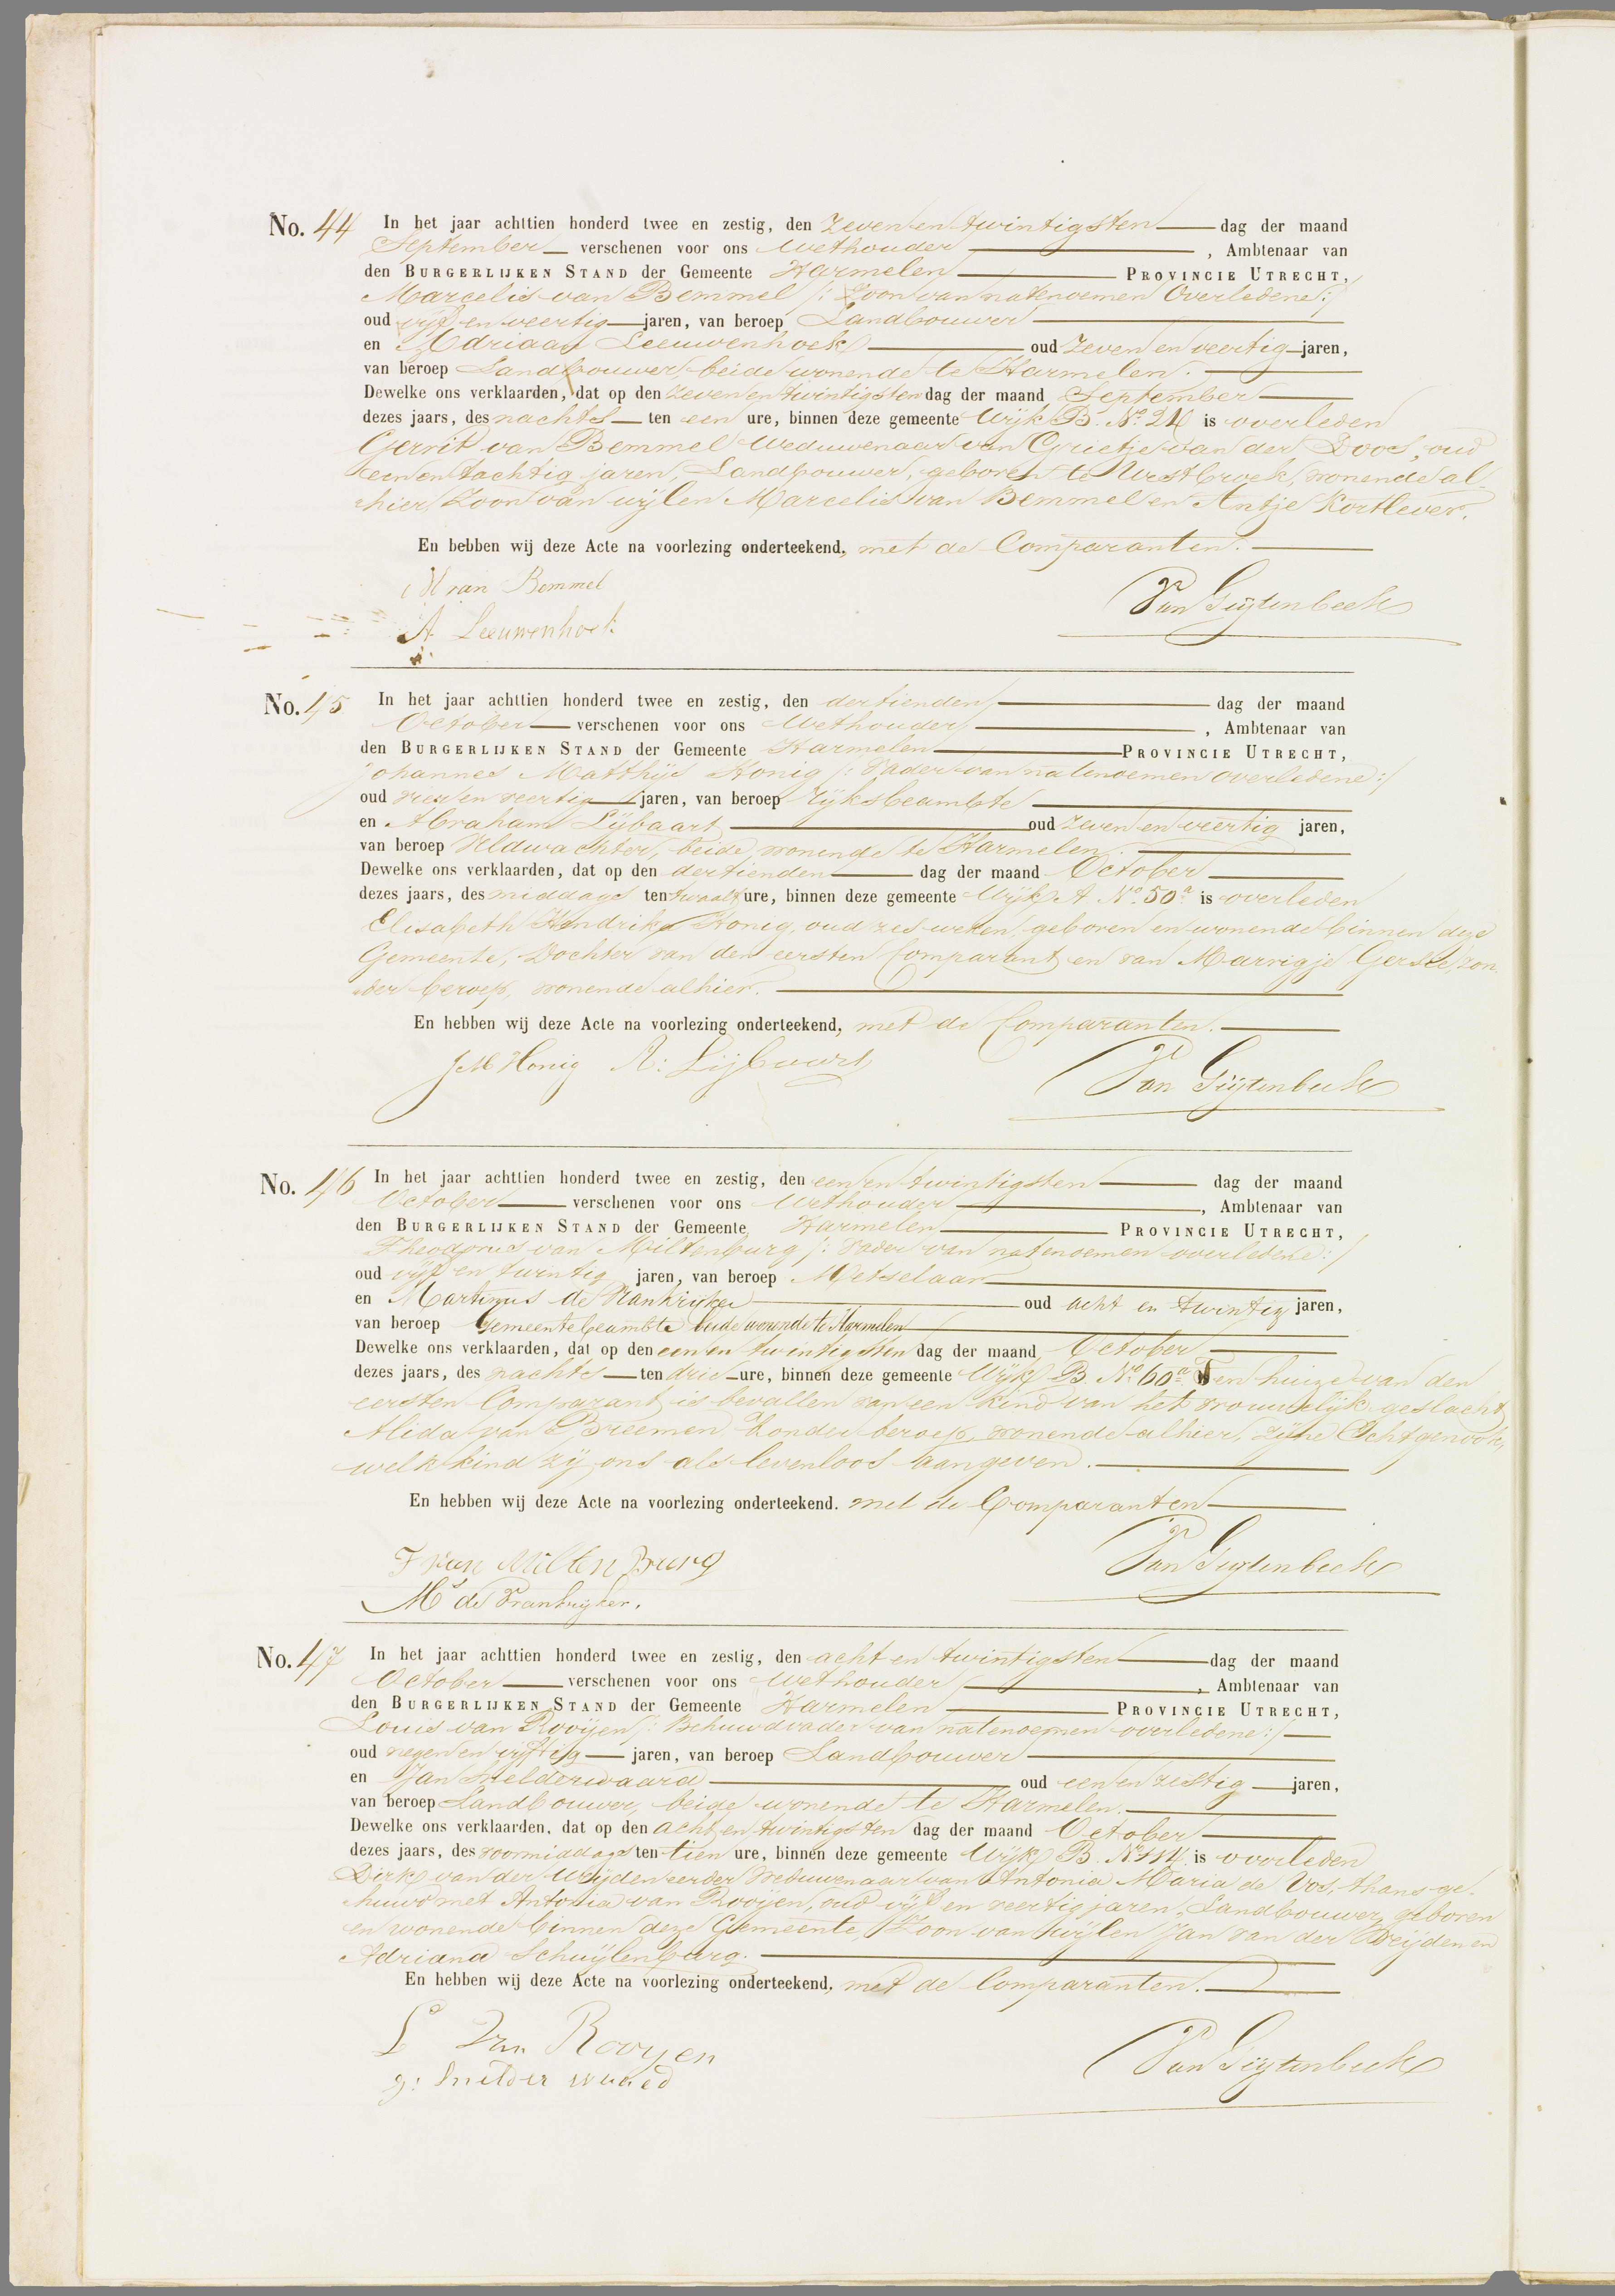 No. 44 In het jaar achttien honderd twee en zestig, den zeven en twintigsten dag der maand
September verschenen voor ons Wethouder , Ambtenaar van
den BURGERLIJKEN STAND der Gemeente Harmelen PROVINCIE UTRECHT,
Marcelis van Bemmel /: Zoon van natenoemen Overledene :/
oud vijf en veertig jaren, van beroep Landbouwer
en Adriaan Leeuwenhoek oud zeven en veertig jaren,
van beroep Landbouwer, beide wonende te Harmelen.
Dewelke ons verklaarden, dat op den zeven en twintigsten dag der maand September
dezes jaars, des nachts ten een ure, binnen deze gemeente Wijk B. No. 24 is overleden
Gerrit van Bemmel Weduwenaar van Grietje van der Doos, oud
een en tachtig jaren, Landbouwer, geboren te Westbroek, wonende al-
hier, Zoon van wijlen Marcelis van Bemmel en Antje Kortlever.
En hebben wij deze Acte na voorlezing onderteekend, met de Comparanten.
M van Bemmel
Van Gijtenbeek
A Leeuwenhoek
No. 45 In het jaar achttien honderd twee en zestig, den dertienden dag der maand
October verschenen voor ons Wethouder , Ambtenaar van
den BURGERLIJKEN STAND der Gemeente Harmelen PROVINCIE UTRECHT,
Johannes Matthijs Honig /: Vader van natenoemen overledene :/
oud vier en veertig jaren, van beroep Rijksbeambte
en Abraham Lijbaart oud zeven en veertig jaren,
van beroep Veldwachter, beide wonende te Harmelen.
Dewelke ons verklaarden, dat op den dertienden dag der maand October
dezes jaars, des middags ten twaalf ure, binnen deze gemeente Wijk A No. 50a is overleden
Elisabeth Hendrika Honig, oud zes weken, geboren en wonende binnen deze
Gemeente, Dochter van den eersten Comparant en van Marrigje Gersee, zon-
der beroep, wonende alhier.
En hebben wij deze Acte na voorlezing onderteekend, met de Comparanten.
J M Honig A: Lijbaart
Van Gijtenbeek
No. 46 In het jaar achttien honderd twee en zestig, den een en twintigsten dag der maand
October verschenen voor ons Wethouder , Ambtenaar van
den BURGERLIJKEN STAND der Gemeente Harmelen PROVINCIE UTRECHT,
Theodorus van Miltenburg /: Vader van natenoemen overledene :/
oud vijf en twintig jaren, van beroep Metselaar
en Martinus de Frankrijker oud acht en twintig jaren,
van beroep Gemeentebeambte beide wonende te Harmelen
Dewelke ons verklaarden, dat op den een en twintigsten dag der maand October
dezes jaars, des nachts ten drie ure, binnen deze gemeente Wijk B No. 60a Ten huize van den
eersten Comparant is bevallen van een kind van het vrouwelijk geslacht
Alida van Breemen Zonder beroep, wonende alhier, zijne Echtgenoote,
welk kind zij ons als levenloos aangeven.
En hebben wij deze Acte na voorlezing onderteekend. met de Comparanten
T van Miltenburg
Van Gijtenbeek
Ms de Frankrijker.
No. 47 In het jaar achttien honderd twee en zestig, den acht en twintigsten dag der maand
October verschenen voor ons Wethouder , Ambtenaar van
den BURGERLIJKEN STAND der Gemeente Harmelen PROVINCIE UTRECHT,
Louis van Rooijen /: Behuwdvader van natenoemen overledene :/
oud negen en vijftig jaren, van beroep Landbouwer
en Jan Snelderwaard oud een en zestig jaren,
van beroep Landbouwer, beide wonende te Harmelen.
Dewelke ons verklaarden, dat op den acht en twintigsten dag der maand October
dezes jaars, des voormiddags ten tien ure, binnen deze gemeente Wijk B. No. 114 is overleden
Dirk van der Weijden eerder Weduwenaar van Antonia Maria de Vos, thans ge-
huwd met Antonia van Rooijen, oud vijf en veertig jaren, Landbouwer, geboren
en wonende binnen deze Gemeente, Zoon van wijlen Jan van der Weijden en
Adriana Schuijlenburg.
En hebben wij deze Acte na voorlezing onderteekend, met de Comparanten.
L Van Rooyen
Van Gijtenbeek